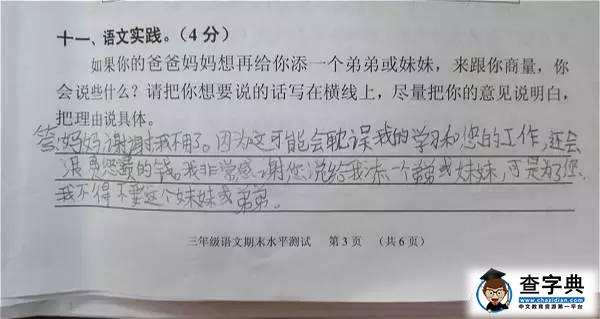 十一、语文实践。(4分)
如果你的爸爸妈妈想再给你添一个弟弟或妹妹，来跟你商量，你
会说些什么？请把你想要说的话写在横线上，尽量把你的意见说明白，
把理由说具体。
答:妈妈谢谢我不用了。因为这可能会耽误我的学习和您的工作,还会
浪费您的钱。我非常感谢您说给我添一个弟弟或妹妹,可是为了您,
我不得不要这个妹妹或弟弟。
三年级语文期末水平测试 第3页 (共6页)
查字典
www.chazidian.com
中文教育资源第一平台